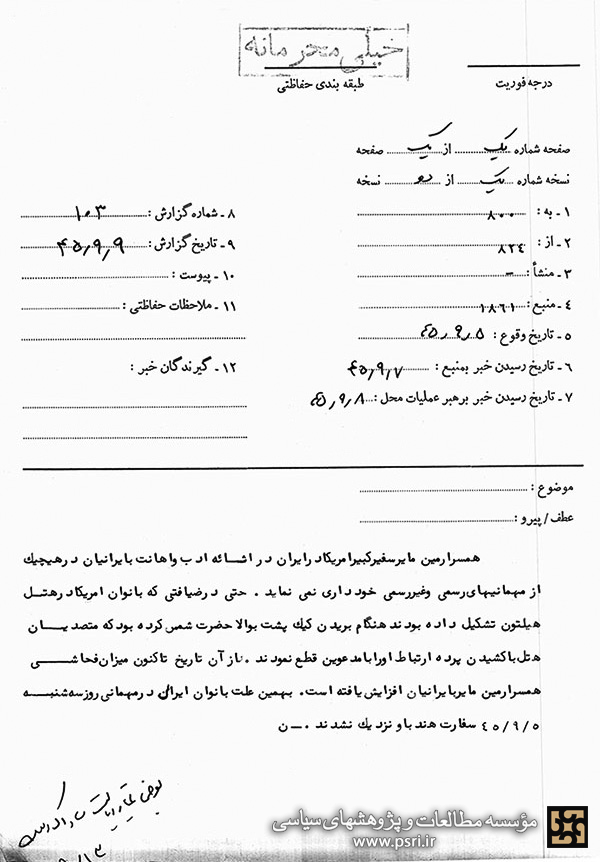 خیلی محرمانه
طبقه بندی حفاظتی
درجه فوریت
صفحه شماره یک از یک صفحه
نسخه شماره یک از دو نسخه
۱ـ به : ۸۰۰
۲ـ از : ۸۲٤
۳ـ منشأ : -
۴ـ منبع : ۱۸٦۱
۵ـ تاریخ وقوع : ۴۵٫۹٫۵
۶ـ تاریخ رسیدن خبر بمنبع : ۴۵٫۹٫۷
۷ـ تاریخ رسیدن خبر برهبر عملیات محل : ۴۵٫۹٫۸
۸ـ شماره گزارش : ۱۰۳
۹ـ تاریخ گزارش : ۴۵٫۹٫۹
۱۰ـ پیوست :
۱۱ـ ملاحظات حفاظتی :
۱۲ـ گیرندگان خبر :
موضوع :
عطف / پیرو :
همسر ارمین مایر سفیر کبیر امریکا در ایران در اسائه ادب و اهانت با ایرانیان در هیچیک
از مهمانیهای رسمی و غیر رسمی خودداری نمی نماید . حتی در ضیافتی که بانوان امریکا در هتل
هیلتون تشکیل داده بودند هنگام بریدن کیک پشت بوالا حضرت شمس کرده بود که متصدیان
هتل با کشیدن پرده ارتباط او را با مدعوین قطع نمودند . از آن تاریخ تاکنون میزان فحاشی
همسر ارمین مایر با ایرانیان افزایش یافته است. بهمین علت بانوان ایران در مهمانی روز سه شنبه
۴۵/۹/۵ سفارت هند باو نزدیک نشدند ۰ ـ ن
مؤسسه مطالعات و پژوهشهای سیاسی
www.psri.ir